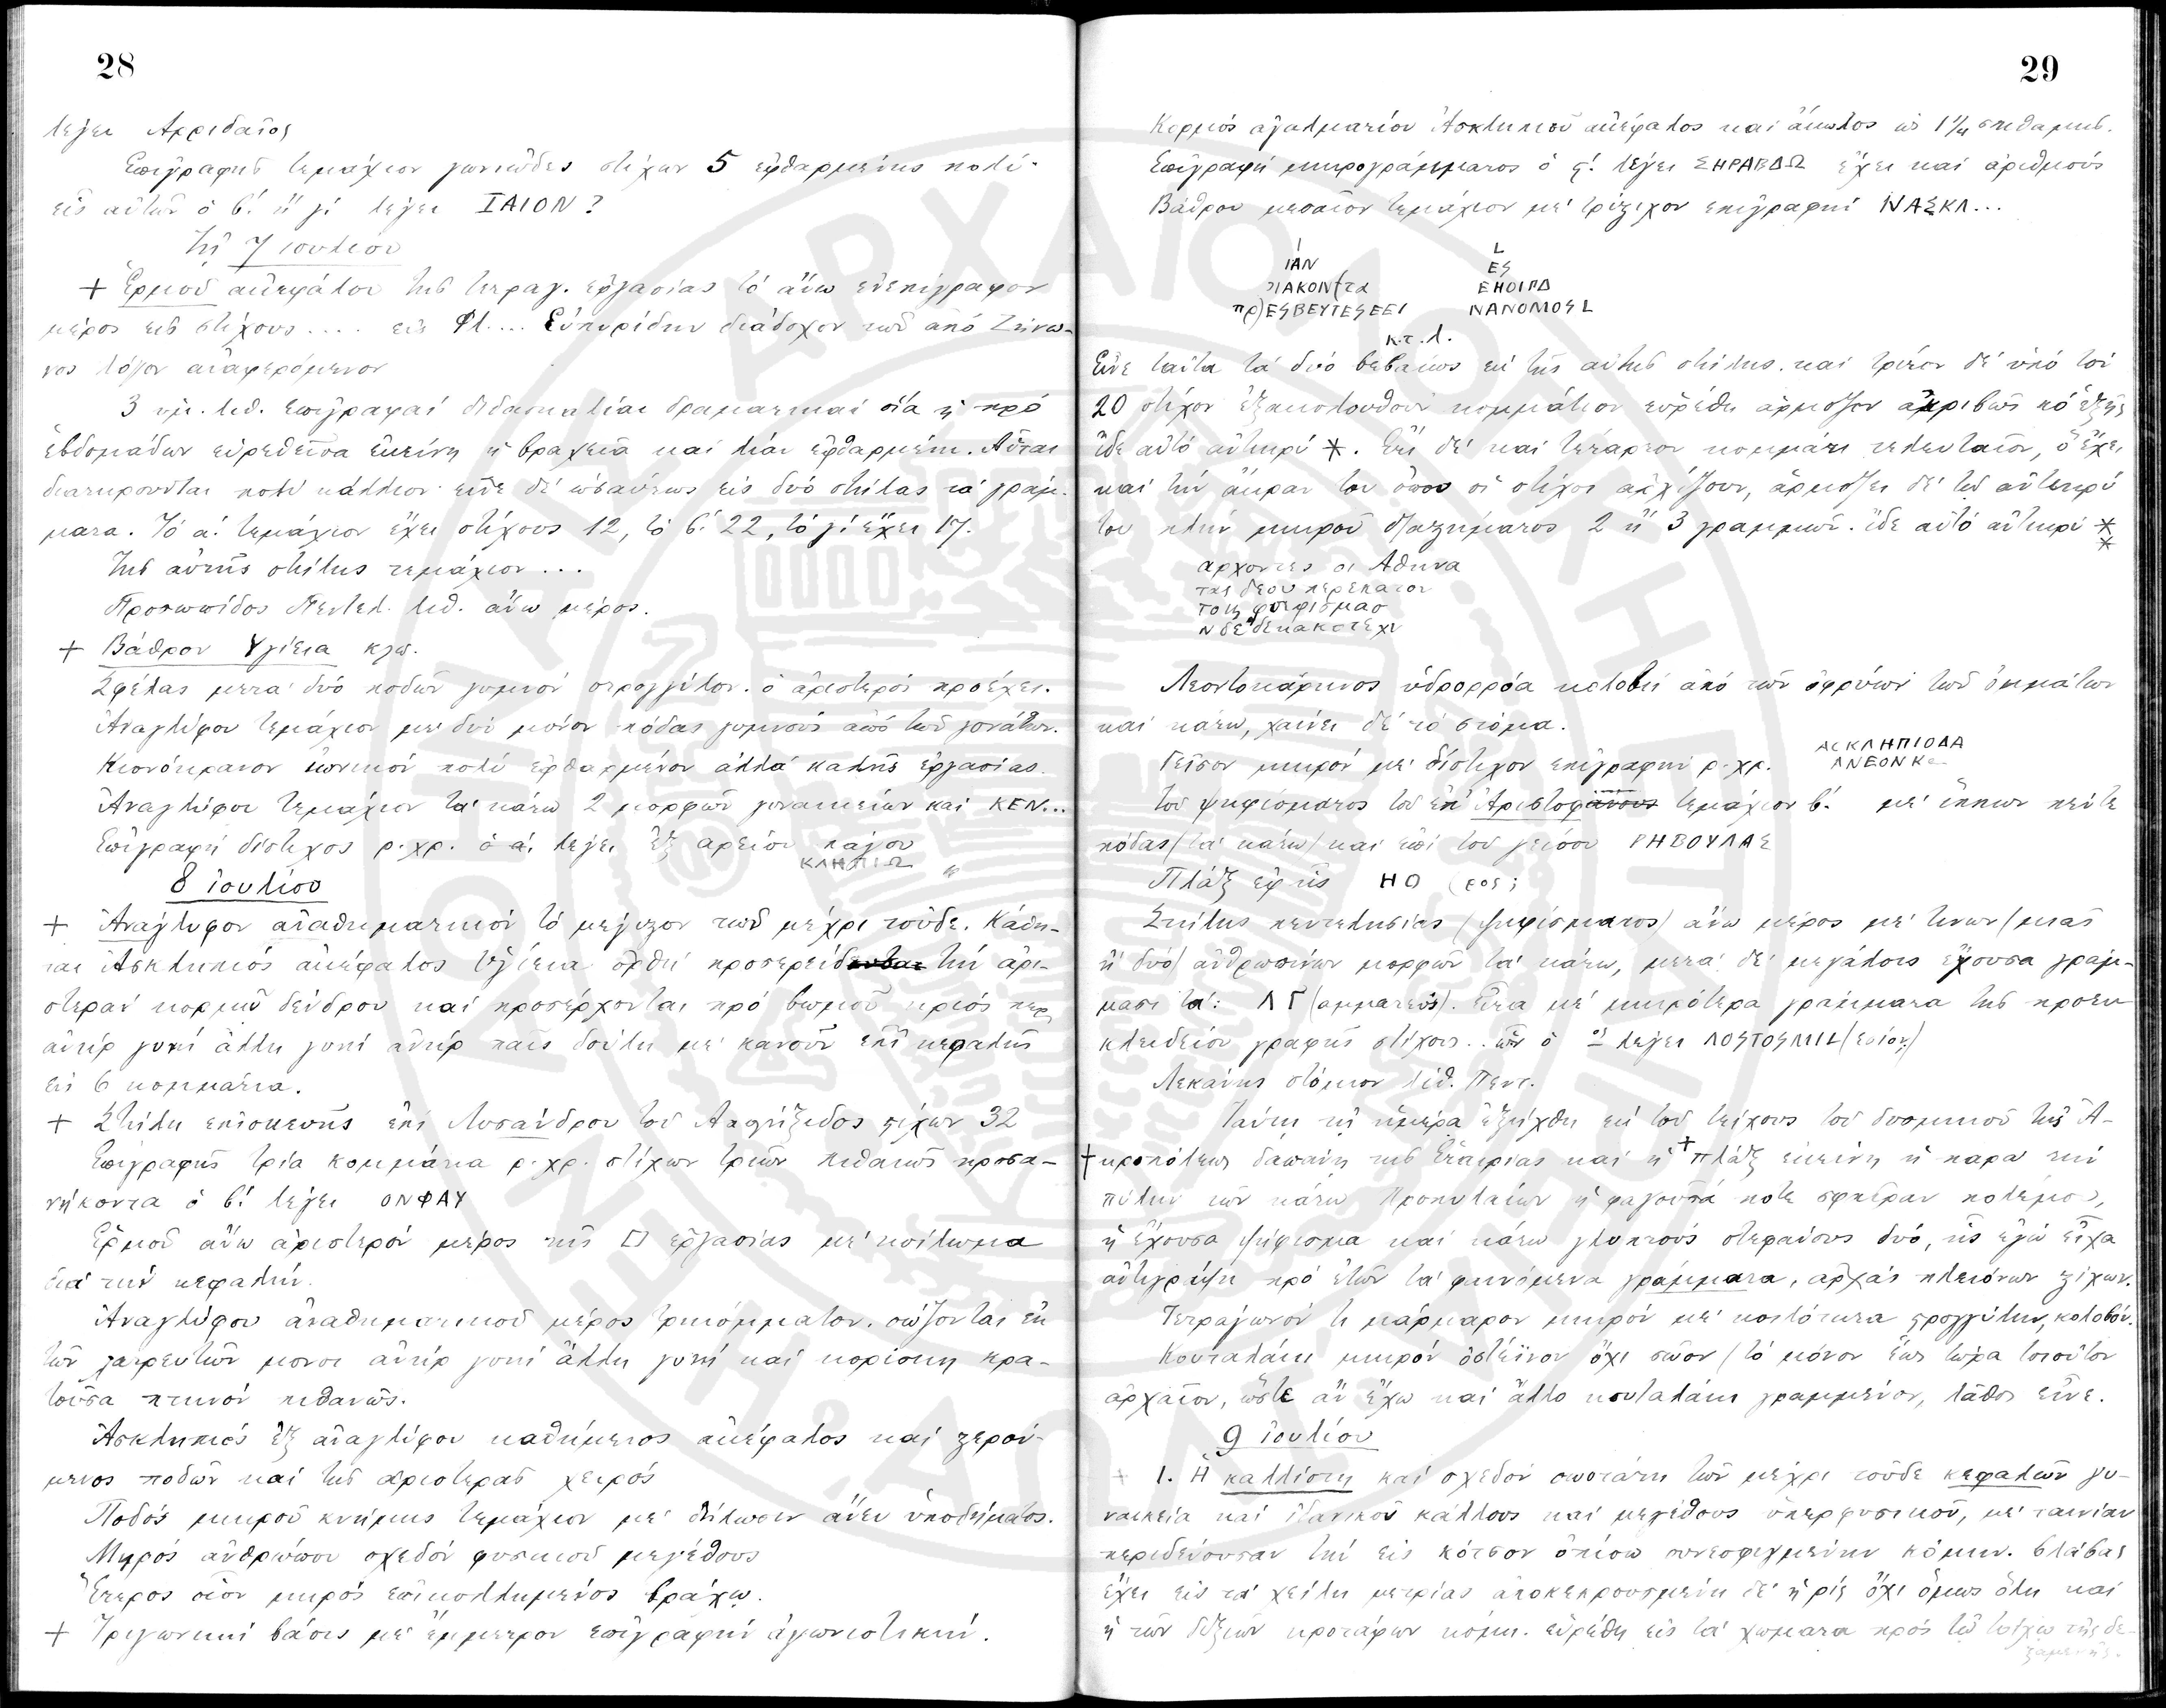 28
λέγει Αρριδαῖος
Ἐπιγραφῆς τεμάχιον γωνιῶδες στίχων 5 ἐφθαρμένης πολύ.
εἷς αὐτῶν ὁ β΄. ἢ γ΄ λέγει ΙΛΙΟΝ?
Τῇ 7 ἰουλίου
+ Ἑρμοῦ ἀκεφάλου τῆς τετραγ. ἐργασίας τὸ ἄνω ἐνεπίγραφον
μέρος εἰς στίχους .... εἰς Φλ.... Εὐπυρίδην διάδοχον τῶν ἀπὸ Ζήνω-
νος λόγων ἀναφερόμενον
3 λιθ. ἐπιγραφαὶ διδασκαλίαι δραματικαὶ οἵα ἡ πρὸ
ἑβδομάδων εὑρεθεῖσα ἐκείνη ἡ βραχεῖα καὶ λίαν ἐφθαρμένη. Αὗται
διατηροῦνται πολὺ κάλλιον εἶνε δὲ ὡσαύτως εἰς δύο στήλας τὰ γράμ-
ματα. Τὸ α΄. τεμάχιον ἔχει στίχους 12, τὸ β΄. 22, τὸ γ΄. ἔχει 17.
Τῆς αὐτῆς στήλης τεμάχιον ...
Προσωπίδος Πεντελ. λιθ. ἄνω μέρος.
+ Βάθρον Υγίεια κλω.
Σφέλας μετὰ δύο ποδῶν γυμνῶν στρογγύλον. ὁ ἀριστερὸς προέχει.
Ἀναγλύφου τεμάχιον μὲ δύο μόνον πόδας γυμνοὺς ἀπὸ τῶν γονάτων.
Κιονόκρανον ἰωνικὸν πολὺ ἐφθαρμένον ἀλλὰ καλῆς ἐργασίας.
Ἀναγλύφου τεμάχιον τὰ κάτω 2 μορφῶν γυναικείων καὶ ΚΕΝ...
Ἐπιγραφὴ δίστιχος ρ. χρ. ὁ α΄. λέγει Ἐξ αρείου πάγου
ΚΛΗΠΙΩ
8 ἰουλίου
+ Ἀνάγλυφον ἀναθηματικὸν τὸ μέγιστον τῶν μέχρι τοῦδε. Κάθη-
ται Ἀσκληπιὸς ἀκέφαλος Ὑγίεια ὀρθὴ προσερείδ τὴν ἀρι-
στερὰν κορμῷ δένδρου καὶ προσέρχονται πρὸ βωμοῦ κριὸς
ἀνὴρ γυνὴ ἄλλη γυνὴ ἀνὴρ παῖς δούλη μὲ κανοῦν ἐπὶ κεφαλῆς
εἰς 6 κομμάτια.
+ Στήλη ἐπισκευῆς ἐπὶ Λυσάνδρου τοῦ στίχων 32
Ἐπιγραφῆς τρία κομμάτια ρ. χρ. στίχων τριῶν πιθανῶς προσα-
νήκοντα ὁ β΄. λέγει ΟΝΦΑΥ
Ἑρμοῦ ἄνω ἀριστερὸν μέρος τῆς □ ἐργασίας μὲ κοίλωμα
διὰ τὴν κεφαλήν.
Ἀναγλύφου ἀναθηματικοῦ μέρος τρικόμματον. σώζονται ἐκ
τῶν λατρευτῶν μόνοι ἀνὴρ γυνὴ ἄλλη γυνὴ καὶ κορίσκη κρα-
τοῦσα πτηνὸν πιθανῶς.
Ἀσκληπιὸς ἐξ ἀναγλύφου καθήμενος ἀκέφαλος καὶ στερού-
μενος ποδῶν καὶ τῆς ἀριστερᾶς χειρός
Ποδὸς μικροῦ κνήμης τεμάχιον μὲ δήλωσιν ἄνευ ὑποδήματος.
Μηρὸς ἀνθρώπου σχεδὸν φυσικοῦ μεγέθους
Ἕτερος οἷον μηρὸς ἐπικολλημένος βράχῳ.
+ Τριγωνικὴ βάσις μὲ ἔμμετρον ἐπιγραφὴν ἀγωνιστικήν.
29
Κορμὸς ἀγαλματίου Ἀσκληπιοῦ ἀκέφαλος καὶ ἄκωλος ὡς 1 1/4 σπιθαμῆς.
Ἐπιγραφὴ μικρογράμματος ὁ ϛ΄. λέγει ΣΗΡΑΒΔΩ ἔχει καὶ ἀριθμούς
Βάθρου μεσαῖον τεμάχιον μὲ τρίστιχον ἐπιγραφὴν ΝΑΣΚΛ...
Ι L
ΙΑΝ ΕΣ
ΙΑΚΟΝ(τα ΕΗΟΙΡΔ
πρ)ΕΣΒΕΥΤΕΣΕΕΙ ΝΑΝΟΜΟΣL
κ.τ.λ.
Εἶνε ταῦτα τὰ δύο βεβαίως ἐκ τῆς αὐτῆς στήλης. καὶ τρίτον δὲ ὑπὸ τὸν
20 στίχον ἐξακολουθοῦν κομμάτιον εὑρέθη ἁρμόζον ἀκριβῶς τὸ ἑξῆς
ἴδε αὐτὸ αὐτικρύ *. Ἔτι δὲ καὶ τέταρτον κομμάτι τελευταῖον, ὃ ἔχει
καὶ τὴν ἄκραν του ὅπου οἱ στίχοι ἀρχίζουν, ἁρμόζει δὲ τῷ αὐτικρύ
του πλὴν μικροῦ διαστήματος 2 ἢ 3 γραμμῶν. ἴδε αὐτὸ αὐτικρὺ **
αρχοντες οι Αθηνα
της δεου περεπατον
τοις ψηφισμασ
Ν δε δεκακοτεχν
Λεοντοκάρηνος ὑδρορρόα κολοβὴ ἀπὸ τῶν ὀφρύων τῶν ὀμμάτων
καὶ κάτω, χαίνει δὲ τὸ στόμα.
Γεῖσον μικρὸν μὲ δίστιχον ἐπιγραφὴν ρ. χρ. ΑΣΚΛΗΠΙΟΔΑ
ΑΝΕΟΝΚ
Τοῦ ψηφίσματος τοῦ ἐπ' Ἀριστοφάνους τεμάχιον β΄. μὲ ἵππων πέντε
πόδας (τὰ κάτω) καὶ ἐπὶ τοῦ γείσου ΡΗΒΟΥΛΑΣ
Πλὰξ ἐφ' ἧς ΗΟ (ρος;
Στήλης πεντελησίας (ψηφίσματος) ἄνω μέρος μὲ τινων (μιᾶς
ἢ δύο) ἀνθρωπίνων μορφῶν τὰ κάτω, μετὰ δὲ μεγάλοις ἔχουσα γράμ-
μασι τά: ΛΓ (αμματεύς). Εἶτα μὲ μικρότερα γράμματα τῆς προευ
κλειδείου γραφῆς στίχοις .. ὧν ὁ α΄ λέγει ΛΟΣΤΟΣΜΙL(
Λεκάνης στόμιον λίθ. Πεντ.
Ταύτῃ τῇ ἡμέρᾳ ἐξήχθη ἐκ τοῦ τείχους τοῦ δυσμικοῦ τῆς Ἀ-
+κροπόλεως δαπάνῃ τῆς Ἑταιρίας καὶ ἡ + πλὰξ ἐκείνη ἡ παρὰ τὴν
πύλην τῶν κάτω Προπυλαίων ἡ φαγοῦσά ποτε σφαῖραν πολέμου,
ἡ ἔχουσα ψήφισμα καὶ κάτω γλυπτοὺς στεφάνους δύο, ἧς ἐγὼ εἶχα
ἀντιγράψῃ πρὸ ἐτῶν τὰ φαινόμενα γράμματα, ἀρχὰς πλειόνων στίχων.
Τετράγωνόν τι μάρμαρον μικρὸν μὲ κοιλότητα στρογγύλην, κολοβόν.
Κουταλάκι μικρὸν ὀστέϊνον ὄχι σῶον (τὸ μόνον ἕως τώρα τοιοῦτον
ἀρχαῖον, ὥστε ἂν ἔχω καὶ ἄλλο κουταλάκι γραμμένον, λάθος εἶνε.
9 ἰουλίου
+ 1. Ἡ καλλίστη καὶ σχεδὸν σωοτάτη τῶν μέχρι τοῦδε κεφαλῶν γυ-
ναικεία καὶ ἰδανικοῦ κάλλους καὶ μεγέθους ὑπερφυσικοῦ, μὲ ταινίαν
περιδέουσαν τὴν εἰς κότσον ὀπίσω συνεσφιγμένην κόμην. βλάβας
ἔχει εἰς τὰ χείλη μετρίας ἀποκεκρουσμένη δὲ ἡ ρὶς ὄχι ὅμως ὅλη καὶ
ἡ τῶν δεξιῶν κροτάφων κόμη. εὑρέθη εἰς τὰ χώματα πρὸς τῷ τοίχῳ τῆς δε-
ξαμενῆς.